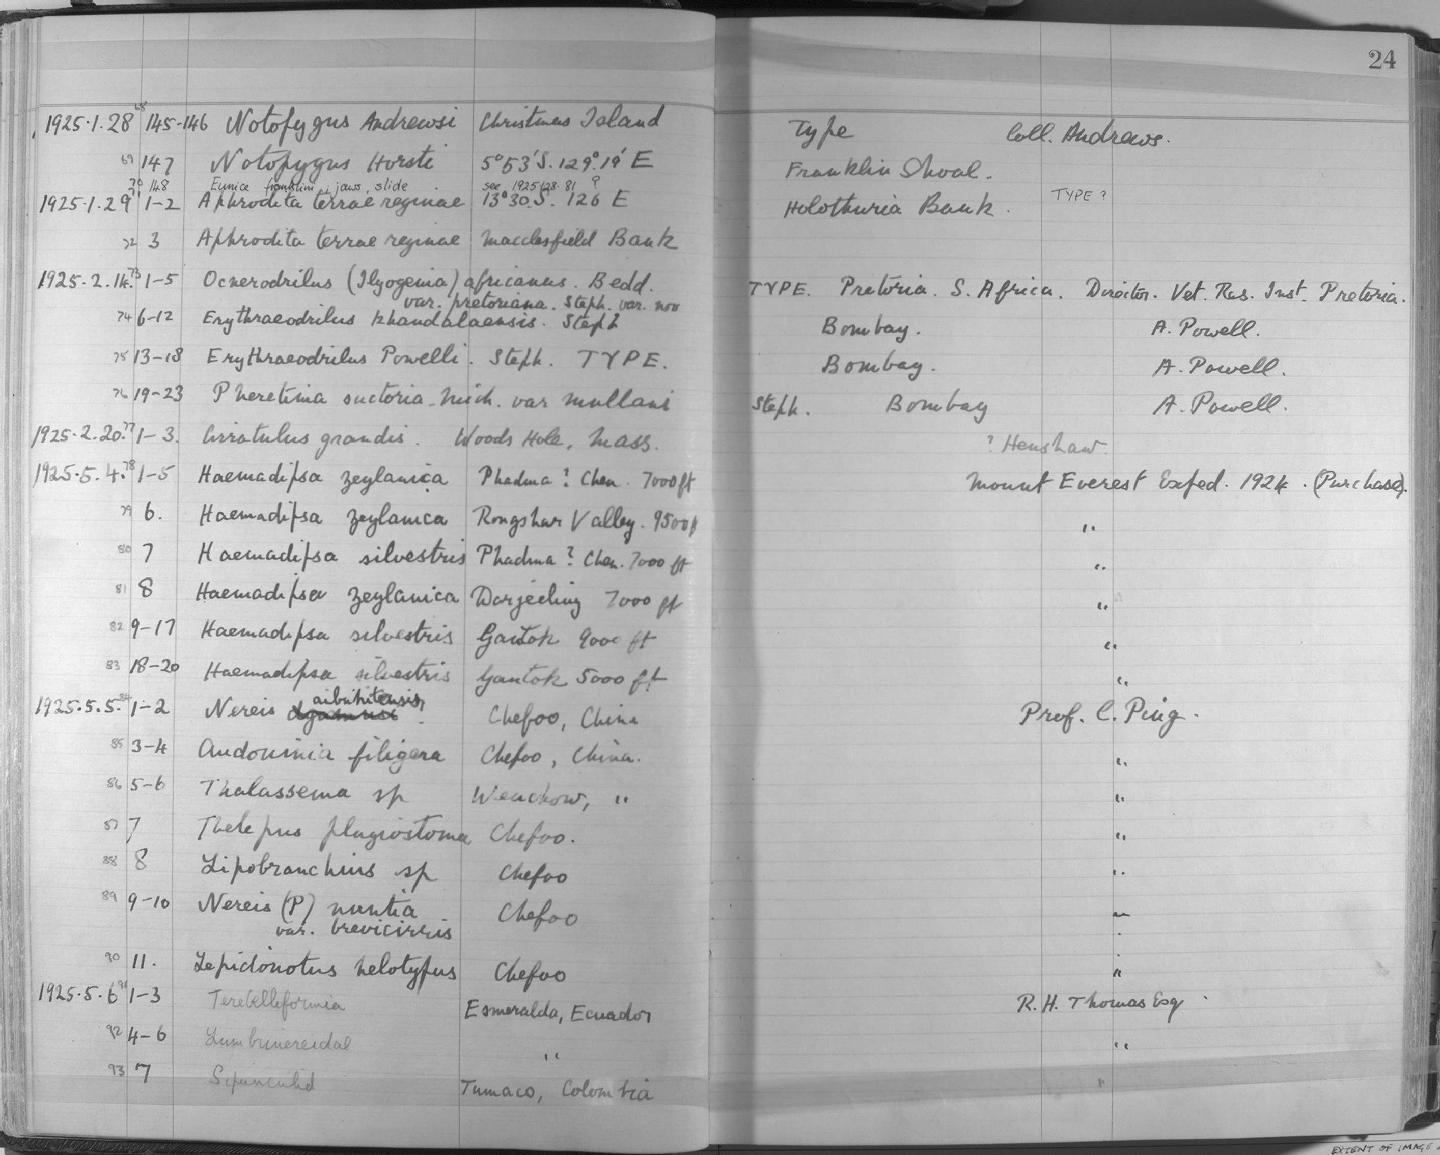 24
68
1925.1.28 145-146 Notopygus Andrewsi Christmas Island Type Coll. Andrews.
69 147 Notopygus Horsti 5°53'S. 129°.19' E Franklin Shoal.
70 148 Eunice franklini, jaws, slide. see 1925.1.28.81 ?
1925.1.29 71 1-2 Aphrodita terrae reginae 13°30.S. 126 E Holothuria Bank. TYPE?
72 3 Aphrodita terrae reginae Macclesfield Bank
1925.2.14. 73 1-5 Ocnerodrilus (Ilyogenia) africanus. Bedd. TYPE. Pretoria. S. Africa. Director. Vet. Res. Inst. Pretoria.
var. pretoriana. Steph. var. nov
74 6-12 Erythraeodrilus Khandalaensis. Steph Bombay. A. Powell.
75 13-18 Erythraeodrilus Powelli. Steph. TYPE. Bombay. A. Powell.
76 19-23 Pheretima suctoria Mich. var mullani Steph. Bombay A. Powell.
1925.2.20. 77 1-3. Cirratulus grandis. Woods Hole, Mass. ? Henshaw.
1925.5.4. 78 1-5 Haemadipsa zeylanica Phadma ? Chen. 7000 ft Mount Everest Exped. 1924. (Purchase).
79 6. Haemadipsa zeylanica Rongshar Valley. 9500 f "
80 7 Haemadipsa silvestris Phadma ? Chen. 7000 ft "
81 8 Haemadipsa zeylanica Darjeeling 7000 ft "
82 9-17 Haemadipsa silvestris Gantok 9000 ft "
83 18-20 Haemadipsa silvestris Gantok 5000 ft "
1925.5.5. 84 1-2 Nereis aibuhitensis. Chefoo, China Prof. C. Ping.
85 3-4 Audouinia filigera Chefoo, China. "
86 5-6 Thalassema sp Wenchow, " "
87 7 Thelepus plagiostoma Chefoo. "
88 8 Lipobranchius sp Chefoo "
89 9-10 Nereis (P) nuntia Chefoo "
var. brevicirris
90 11. Lepidonotus helotypus Chefoo "
1925.5.6 91 1-3 Terebelliformia Esmeralda, Ecuador R. H. Thomas Esq
92 4-6 Lumbrinereidae " "
93 7 Sipunculid Tumaco, Colombia "
EXTENT OF IMAGE